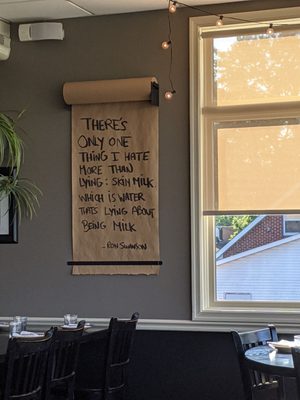 THERE'S
ONLY ONE
THING I HATE
MORE THAN
LYING: SKIM MILK.
WHICH IS WATER
THATS LYING ABOUT
BEING MILK
- RON SWANSON